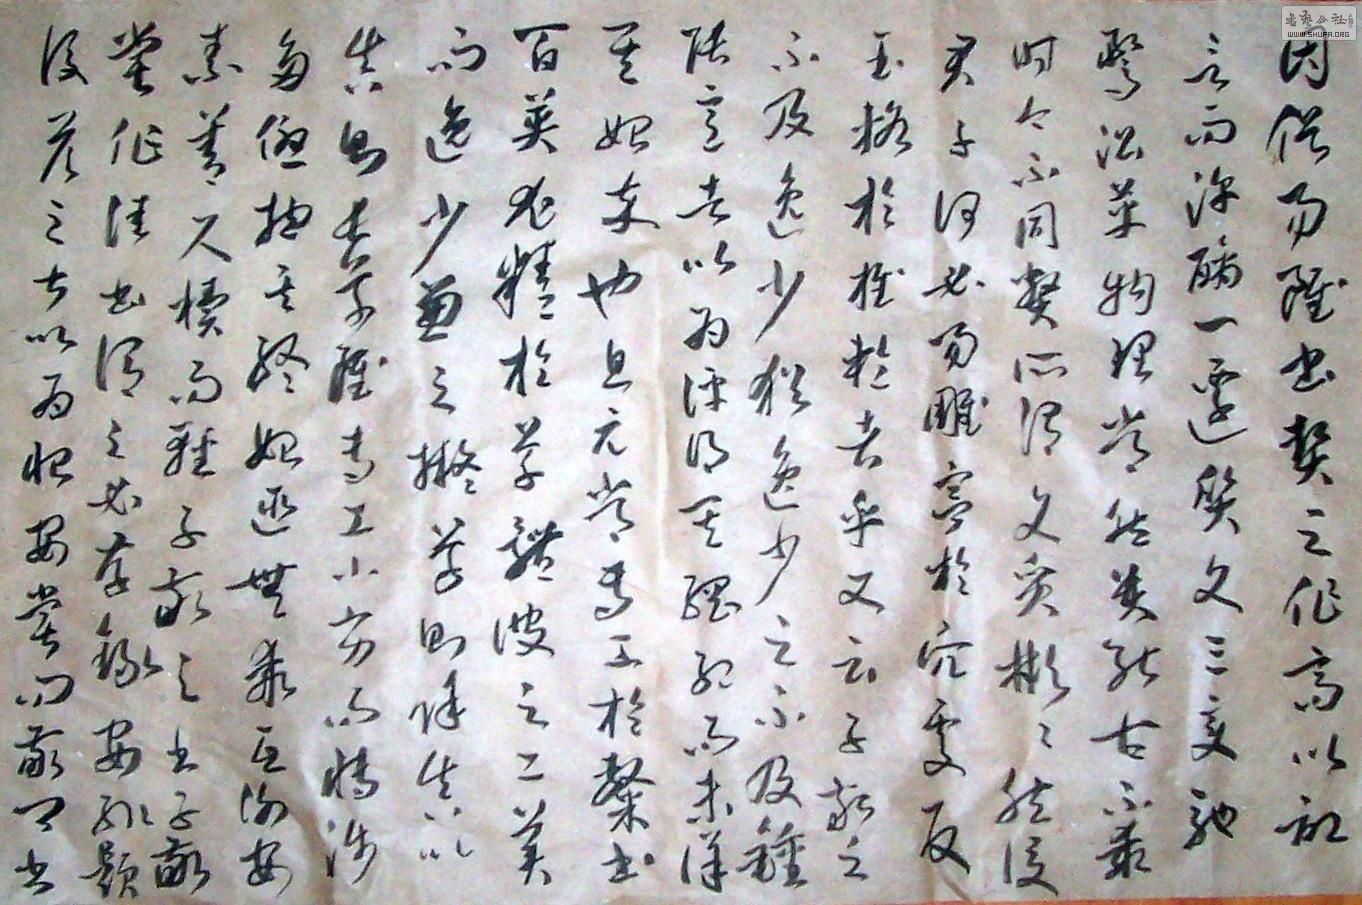 因俗易雖書契之作適以記
言而淳醨一遷質文三變馳
騖沿革物理常然貴能古不乖
時今不同弊所謂文質彬彬然後
君子何必易雕宮於穴處反
玉輅於椎輪者乎又云子敬之
不及逸少猶逸少之不及鍾
張意者以為評得其綱紀而未詳
其始卒也且元常專工於隸書
百英尤精於草體彼之二美
而逸少兼之擬草則餘真比
真則長草雖專工小劣而博涉
多優總其終始匪無乖互謝安
素善尺牘而輕子敬之書子敬
嘗作佳書謂之必存錄安輒題
後答之甚以為恨安嘗問敬卿書
书艺公社
WWW.SHUFA.ORG